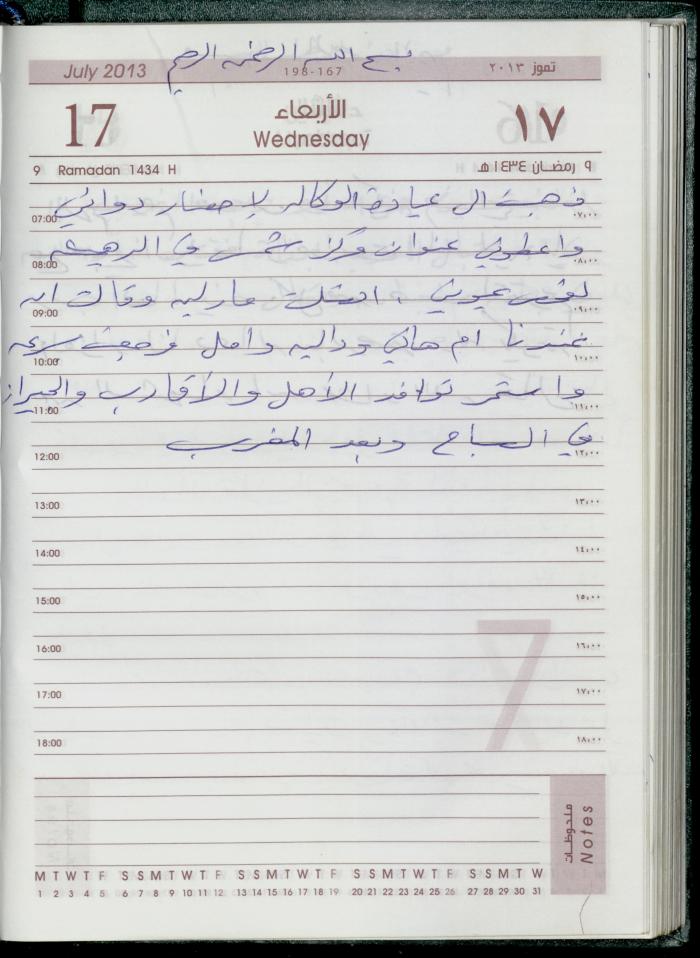 بسم الله الرحمن الرحيم
July 2013
198-167
تموز ٢٠١٣
17
الأربعاء
Wednesday
١٧
9 Ramadan 1434 H
٩ رمضان ١٤٣٤ هـ
ذهبت الى عيادة الوكاله لاحضار دوائي
07:00 ٠٧:٠٠
واعطوني عنوان مركز شمس في الرهيمه
08:00 ٠٨:٠٠
لفحص عيوني ، اتصلت ماريه وقالت انه
09:00 ٠٩:٠٠
عندنا ام هاني وداليه وامل فرجعت سريعه
10:00 ١٠:٠٠
واستمر توافد الأهل والأقارب والجيران
11:00 ١١:٠٠
في الصباح وبعد المغرب
12:00 ١٢:٠٠
13:00 ١٣:٠٠
14:00 ١٤:٠٠
15:00 ١٥:٠٠
16:00 ١٦:٠٠
17:00 ١٧:٠٠
18:00 ١٨:٠٠
7
ملحوظات
Notes
M T W T F S S M T W T F S S M T W T F S S M T W T F S S M T W
1 2 3 4 5 6 7 8 9 10 11 12 13 14 15 16 17 18 19 20 21 22 23 24 25 26 27 28 29 30 31